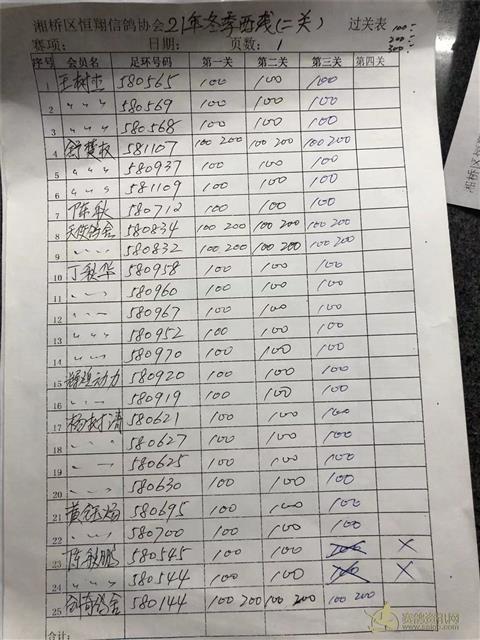 湘桥区恒翔信鸽协会21年冬季两残(二关) 过关表 100:
200:
300:
赛项: 日期: 页数: 1
序号 会员名 足环号码 第一关 第二关 第三关 第四关
1 王树生 580565 100 100 100
2 〃 〃 〃 580569 100 100 100
3 〃 〃 〃 580568 100 100 100
4 581107 100 200 100 200 100 200
5 〃 〃 〃 580937 100 100 100
6 〃 〃 〃 581109 100 100 100
7 陈秋 580712 100 100 100
8 天使鸽舍 580834 100 200 100 200 100 200
9 〃 〃 〃 580832 100 200 100 200 100 200
10 丁秋华 580958 100 100 100
11 〃 〃 580960 100 100 100
12 〃 〃 580967 100 100 100
13 〃 〃 〃 580952 100 100 100
14 〃 〃 580970 100 100 100
15 翔动力 580920 100 100 100
16 〃 〃 580919 100 100 100
17 杨树清 580621 100 100 100
18 〃 〃 580627 100 100 100
19 〃 〃 580625 100 100 100
20 〃 〃 580630 100 100 100
21 黄钰炀 580695 100 100 100
22 〃 〃 580700 100 100 100
23 陈秋鹏 580545 100 100 100 ×
24 〃 〃 〃 580544 100 100 100 ×
25 剑奇鸽舍 580144 100 200 100 200 100 200
合计:
湘桥区恒